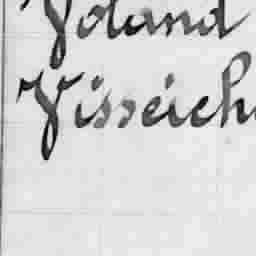 Voland
Visseich